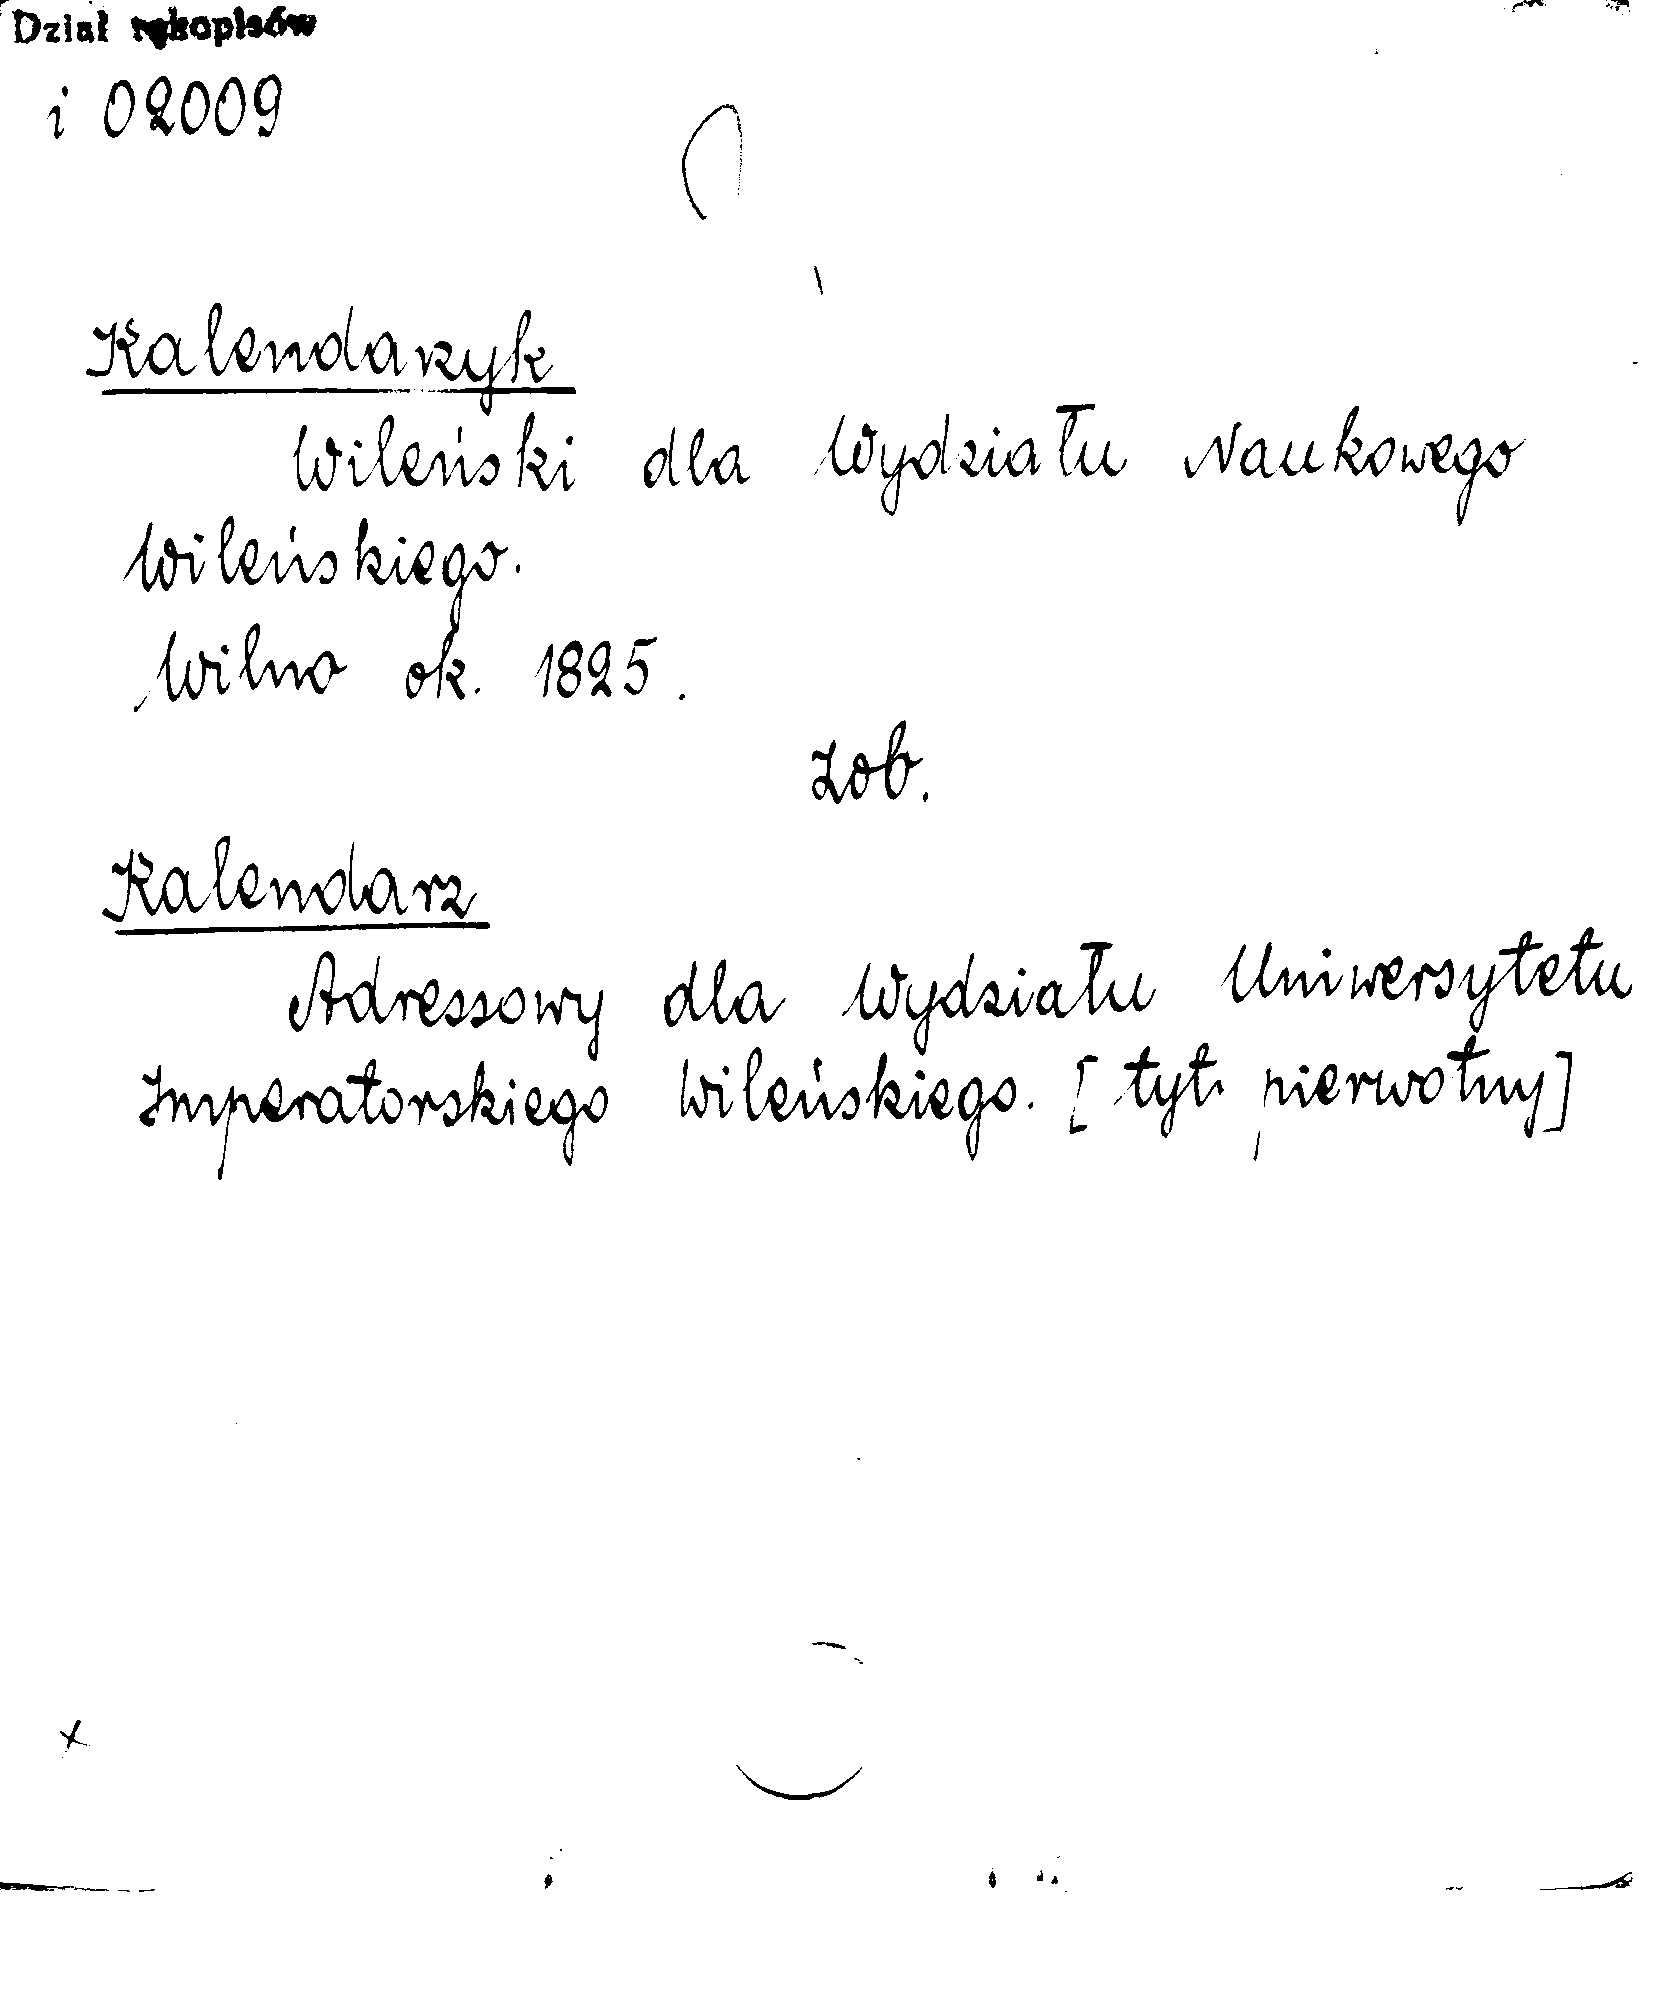 Dział rękopisów
i 02009
Kalendarzyk
Wileński dla Wydziału Naukowego
Wileńskiego.
Wilno ok. 1825.
zob.
Kalendarz
Adressowy dla Wydziału Uniwersytetu
Imperatorskiego Wileńskiego. [tyt. pierwotny]
x